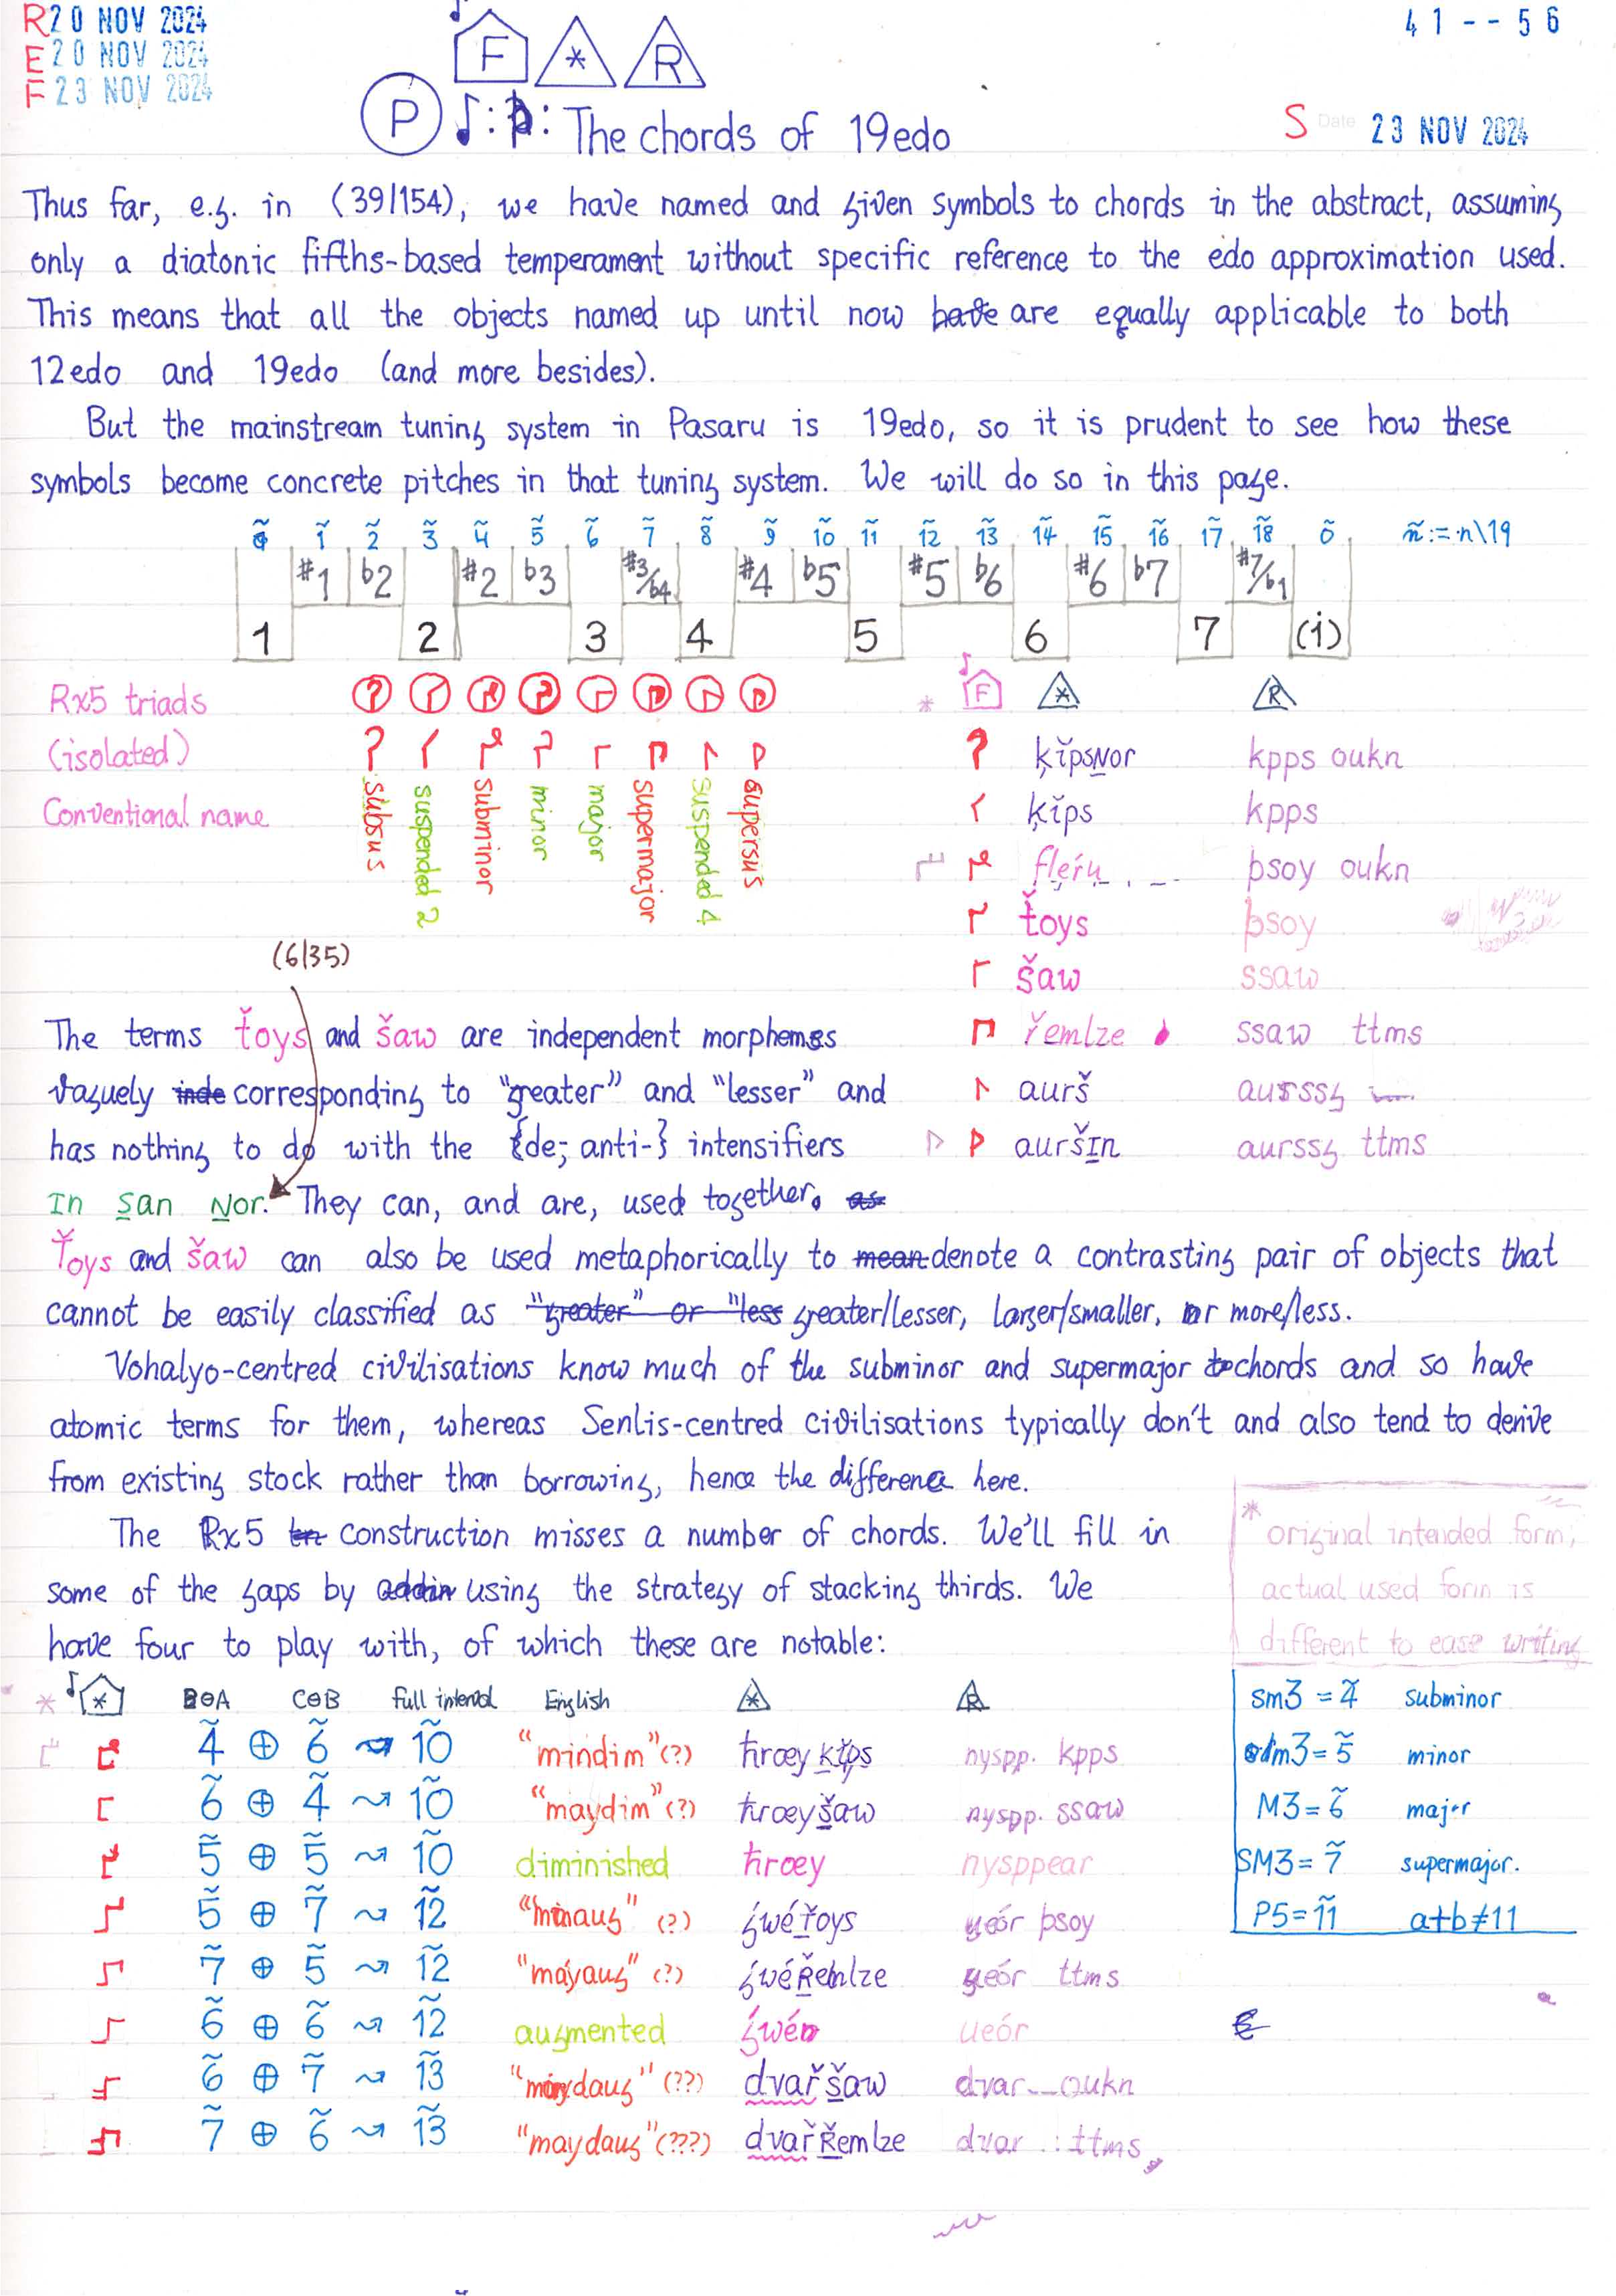 R 20 NOV 2024
E 20 NOV 2024
F 23 NOV 2024
41--56
F * R
P The chords of 19edo
S Date 23 NOV 2024
Thus far, e.g. in (39/154), we have named and given symbols to chords in the abstract, assuming
only a diatonic fifths-based temperament without specific reference to the edo approximation used.
This means that all the objects named up until now have are equally applicable to both
12edo and 19edo (and more besides).
But the mainstream tuning system in Pasaru is 19edo, so it is prudent to see how these
symbols become concrete pitches in that tuning system. We will do so in this page.
0̃ 1̃ 2̃ 3̃ 4̃ 5̃ 6̃ 7̃ 8̃ 9̃ 10̃ 11̃ 12̃ 13̃ 14̃ 15̃ 16̃ 17̃ 18̃ 0̃ ñ := n\19
#1 b2 #2 b3 #3/b4 #4 b5 #5 b6 #6 b7 #7/b1
1 2 3 4 5 6 7 (i)
Rx5 triads
* F * R
(isolated)
ķǐpsṉor kpps oukn
Conventional name
subsus suspended 2 subminor minor major supermajor suspended 4 supersus
ķǐps kpps
fleŕu þsoy oukn
ťoys þsoy
šaw ssaw
řemlze ssaw ttms
aurš aurssg
auršIn aurssg ttms
(6/35)
The terms ťoys and šaw are independent morphemes
vaguely inde corresponding to "greater" and "lesser" and
has nothing to do with the {de; anti-} intensifiers
In San Nor. They can, and are, used together. as
Ťoys and šaw can also be used metaphorically to mean denote a contrasting pair of objects that
cannot be easily classified as "greater" or "less greater/lesser, larger/smaller, or more/less.
Vohalyo-centred civilisations know much of the subminor and supermajor to chords and so have
atomic terms for them, whereas Senlis-centred civilisations typically don't and also tend to derive
from existing stock rather than borrowing, hence the difference here.
The Rx5 construction misses a number of chords. We'll fill in
some of the gaps by addin using the strategy of stacking thirds. We
have four to play with, of which these are notable:
* original intended form;
actual used form is
different to ease writing
* * B⊖A C⊖B full interval English * R
4̃ ⊕ 6̃ ⇝ 10̃ "mindim" (?) ħrœy ķǐps nyspp. kpps
6̃ ⊕ 4̃ ⇝ 10̃ "maydim" (?) ħrœy šaw nyspp. ssaw
5̃ ⊕ 5̃ ⇝ 10̃ diminished ħrœy nysppear
5̃ ⊕ 7̃ ⇝ 12̃ "minaug" (?) ǵwéťoys ueór þsoy
7̃ ⊕ 5̃ ⇝ 12̃ "mayaug" (?) ǵwéŘemlze ueór ttms
6̃ ⊕ 6̃ ⇝ 12̃ augmented ǵwé ueór
6̃ ⊕ 7̃ ⇝ 13̃ (??) dvařšaw dvar oukn
7̃ ⊕ 6̃ ⇝ 13̃ "maydaug" (???) dvařŘemlze dvar ttms
sm3 = 4̃ subminor
m3 = 5̃ minor
M3 = 6̃ major
SM3 = 7̃ supermajor.
P5 = 11̃ a+b≠11